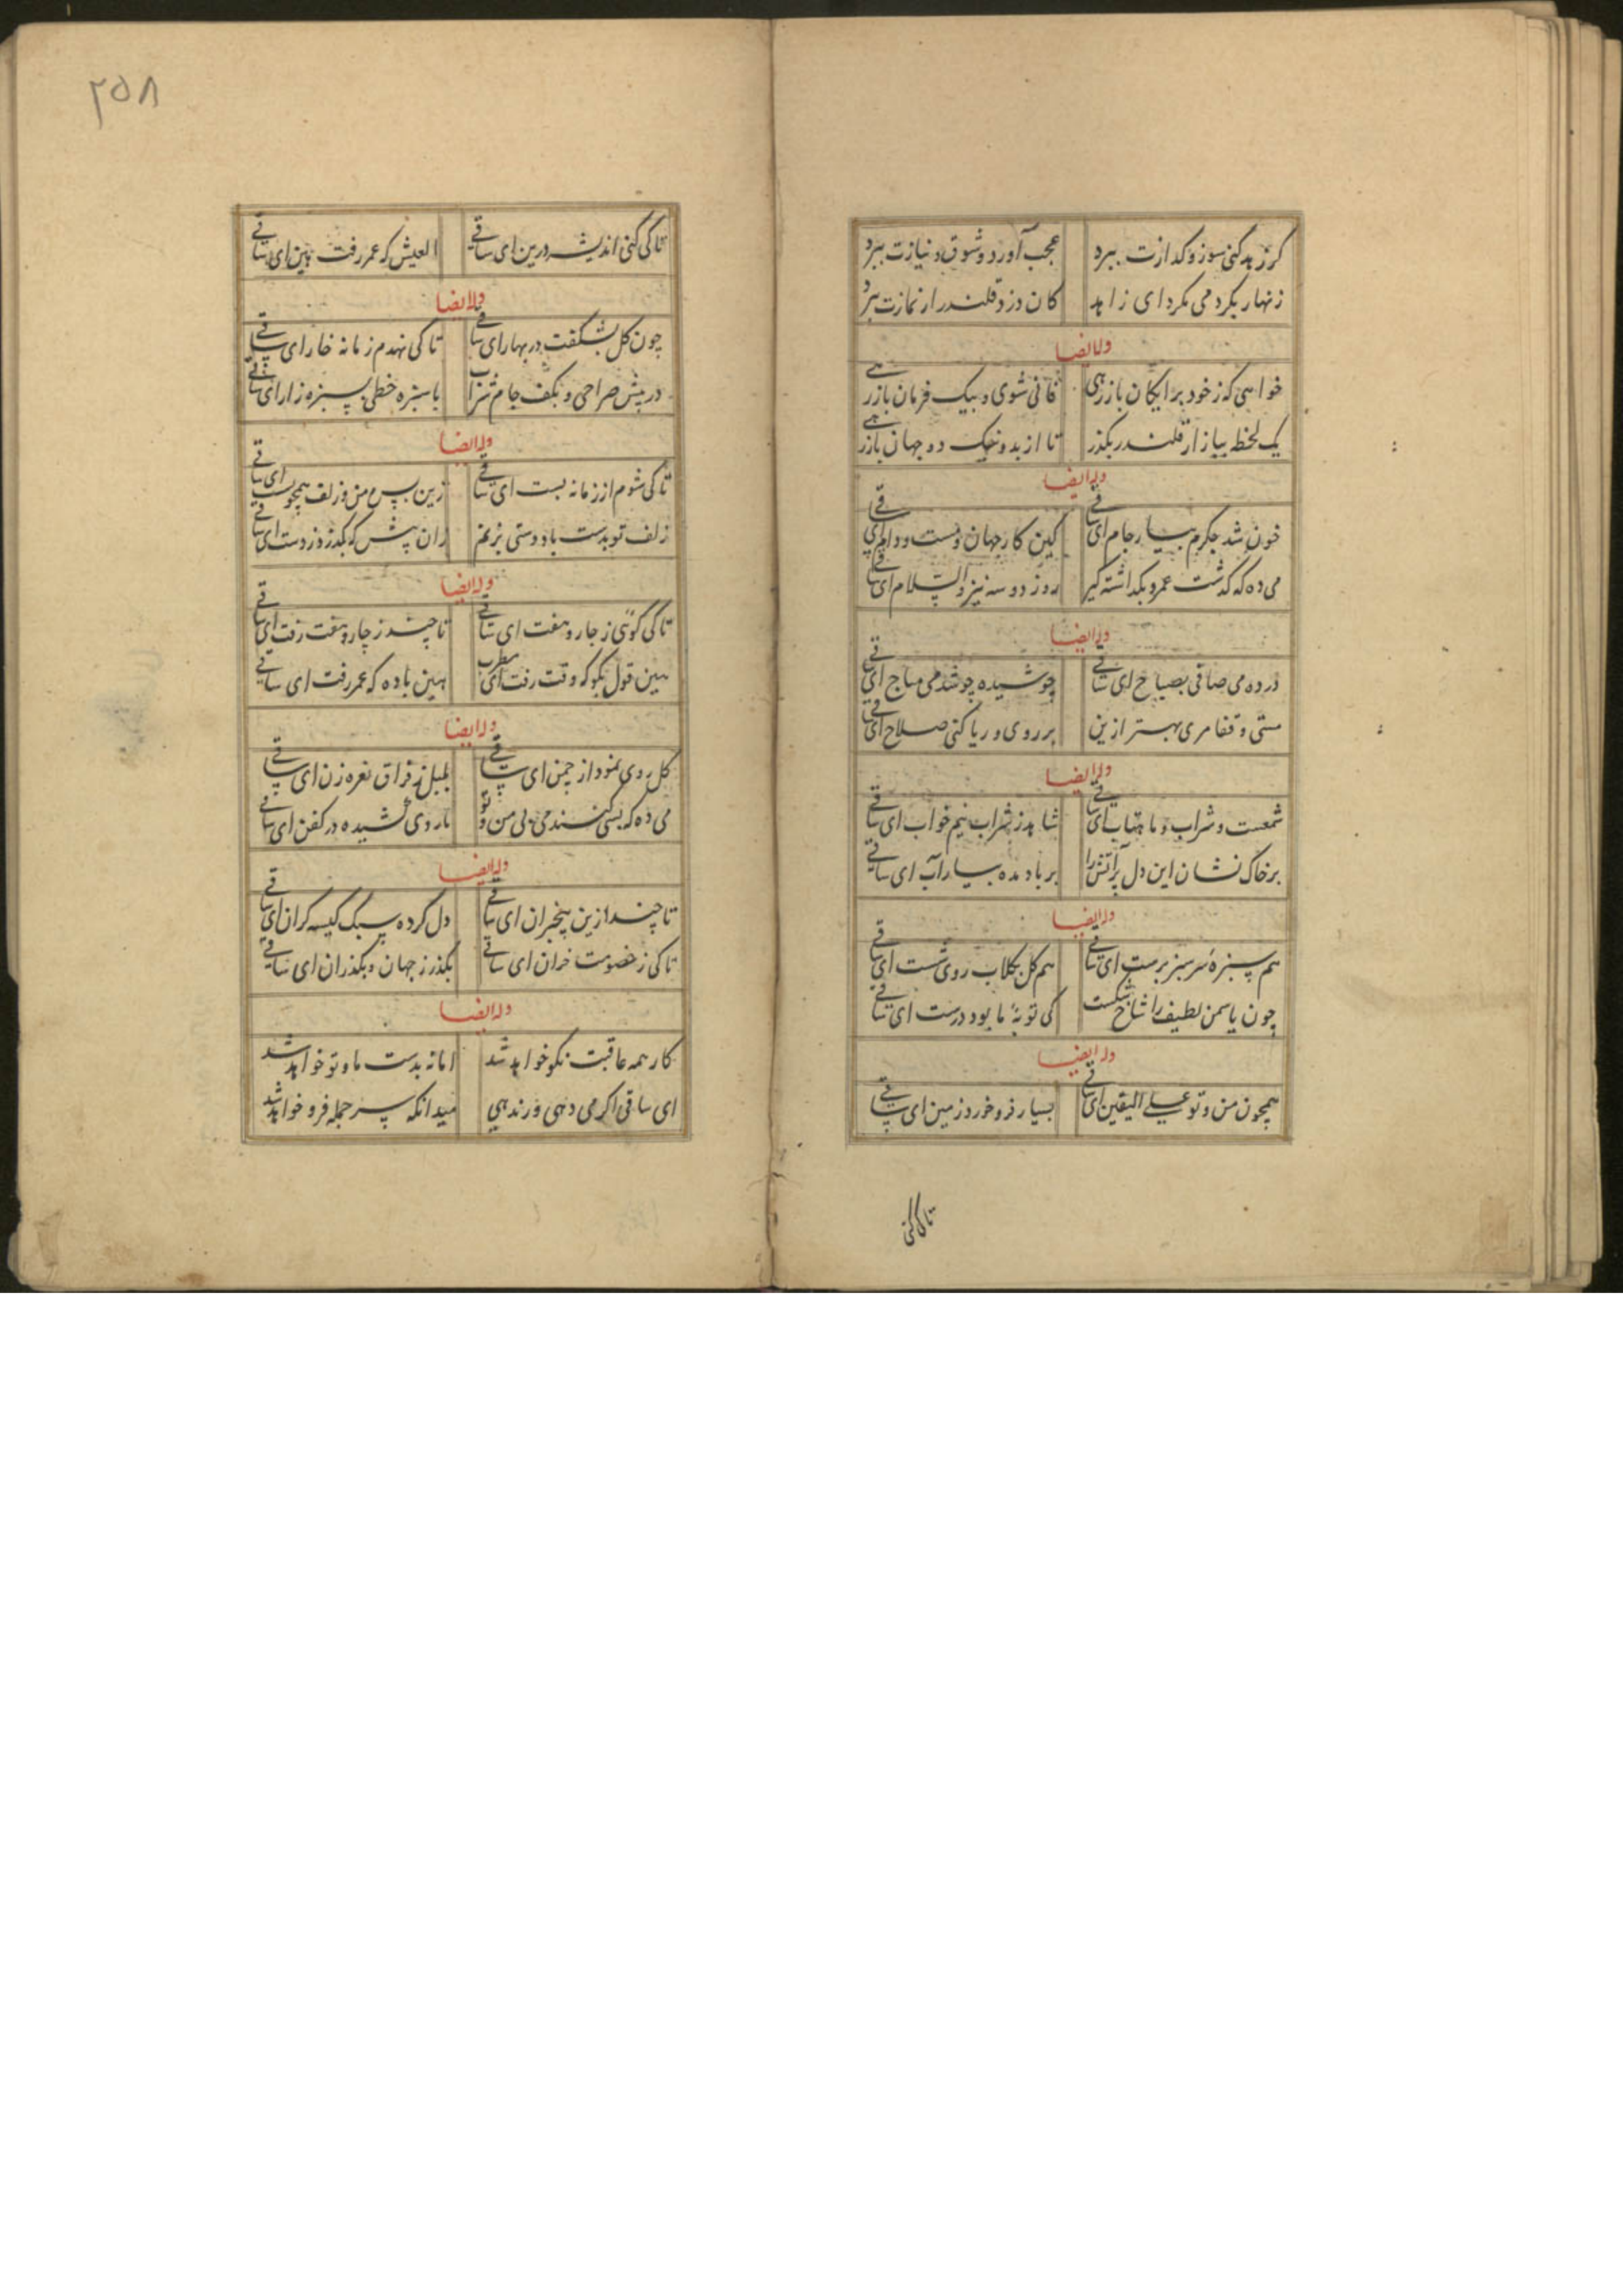 کر زهد کنی سوز و کدازت ببرد عجب آورد و شوق و نیازت ببرد
زنهار بکرد می مکرد ای زاهد کان دزد قلندر از نمازت ببرد
وله ایضا
خواهی که ز خود برایکان باز رهی فانی شوی و بیک فرمان باز رهی
یک لحظه ببازار قلندر بکذر تا از بد و نیک دو جهان باز رهی
وله ایضا
خون شد جکرم بیار جام ای ساقی کین کار جهان دمست و دام ای ساقی
می ده که کذشت عمر و بکذاشته کیر روز دو سه نیز والسلام ای ساقی
وله ایضا
درده می صافی بصباح ای ساقی جوشیده چو شد می مباح ای ساقی
مستی و قفا مری بهتر ازین بر روی و ریا کنی صلاح ای ساقی
وله ایضا
شمعست و شراب و ماهتاب ای ساقی شاهد ز شراب نیم خواب ای ساقی
بر خاک نشان این دل پر آتش را بر باد مده بیار آب ای ساقی
وله ایضا
هم سبزهٔ سرسبز برست ای ساقی هم کل بکلاب روی شست ای ساقی
چون یاسمن لطیف را شاخ شکست کی توبهٔ ما بود درست ای ساقی
وله ایضا
همچون من و تو علی الیقین ای ساقی بسیار فرو خورد زمین ای ساقی
تا کی کنی
۲۵۸
تا کی کنی اندیشه درین ای ساقی العیش که عمر رفت بین ای ساقی
وله ایضا
چون کل بشکفت در بهار ای ساقی تا کی نهدم زمانه خار ای ساقی
در پیش صراحی و بکف جام شراب با سبزه خطی بسبزه زار ای ساقی
وله ایضا
تا کی شوم از زمانه پست ای ساقی زین پس من و زلف همچو شست ای ساقی
زلف تو بدست باد و وستی بزنم زان پیش که بکذرد ز دست ای ساقی
وله ایضا
تا کی کوئی ز چار و هفت ای ساقی تا چند ز چار و هفت رفت ای ساقی
هین قول بکو که وقت رفت ای مطرب هین باده که عمر رفت ای ساقی
وله ایضا
کل روی نمود از چمن ای ساقی بلبل ز فراق نعره زن ای ساقی
می ده که بسی کشند می بی من و تو ما روی کشیده در کفن ای ساقی
وله ایضا
تا چند ازین بیخبران ای ساقی دل کرده سبک کیسه کران ای ساقی
تا کی ز خصومت خران ای ساقی بکذر ز جهان و بکذران ای ساقی
وله ایضا
کار همه عاقبت نکو خواهد شد اما نه بدست ما و تو خواهد شد
ای ساقی اکر می دهی ور ندهی میدانکه سر جمله فرو خواهد شد